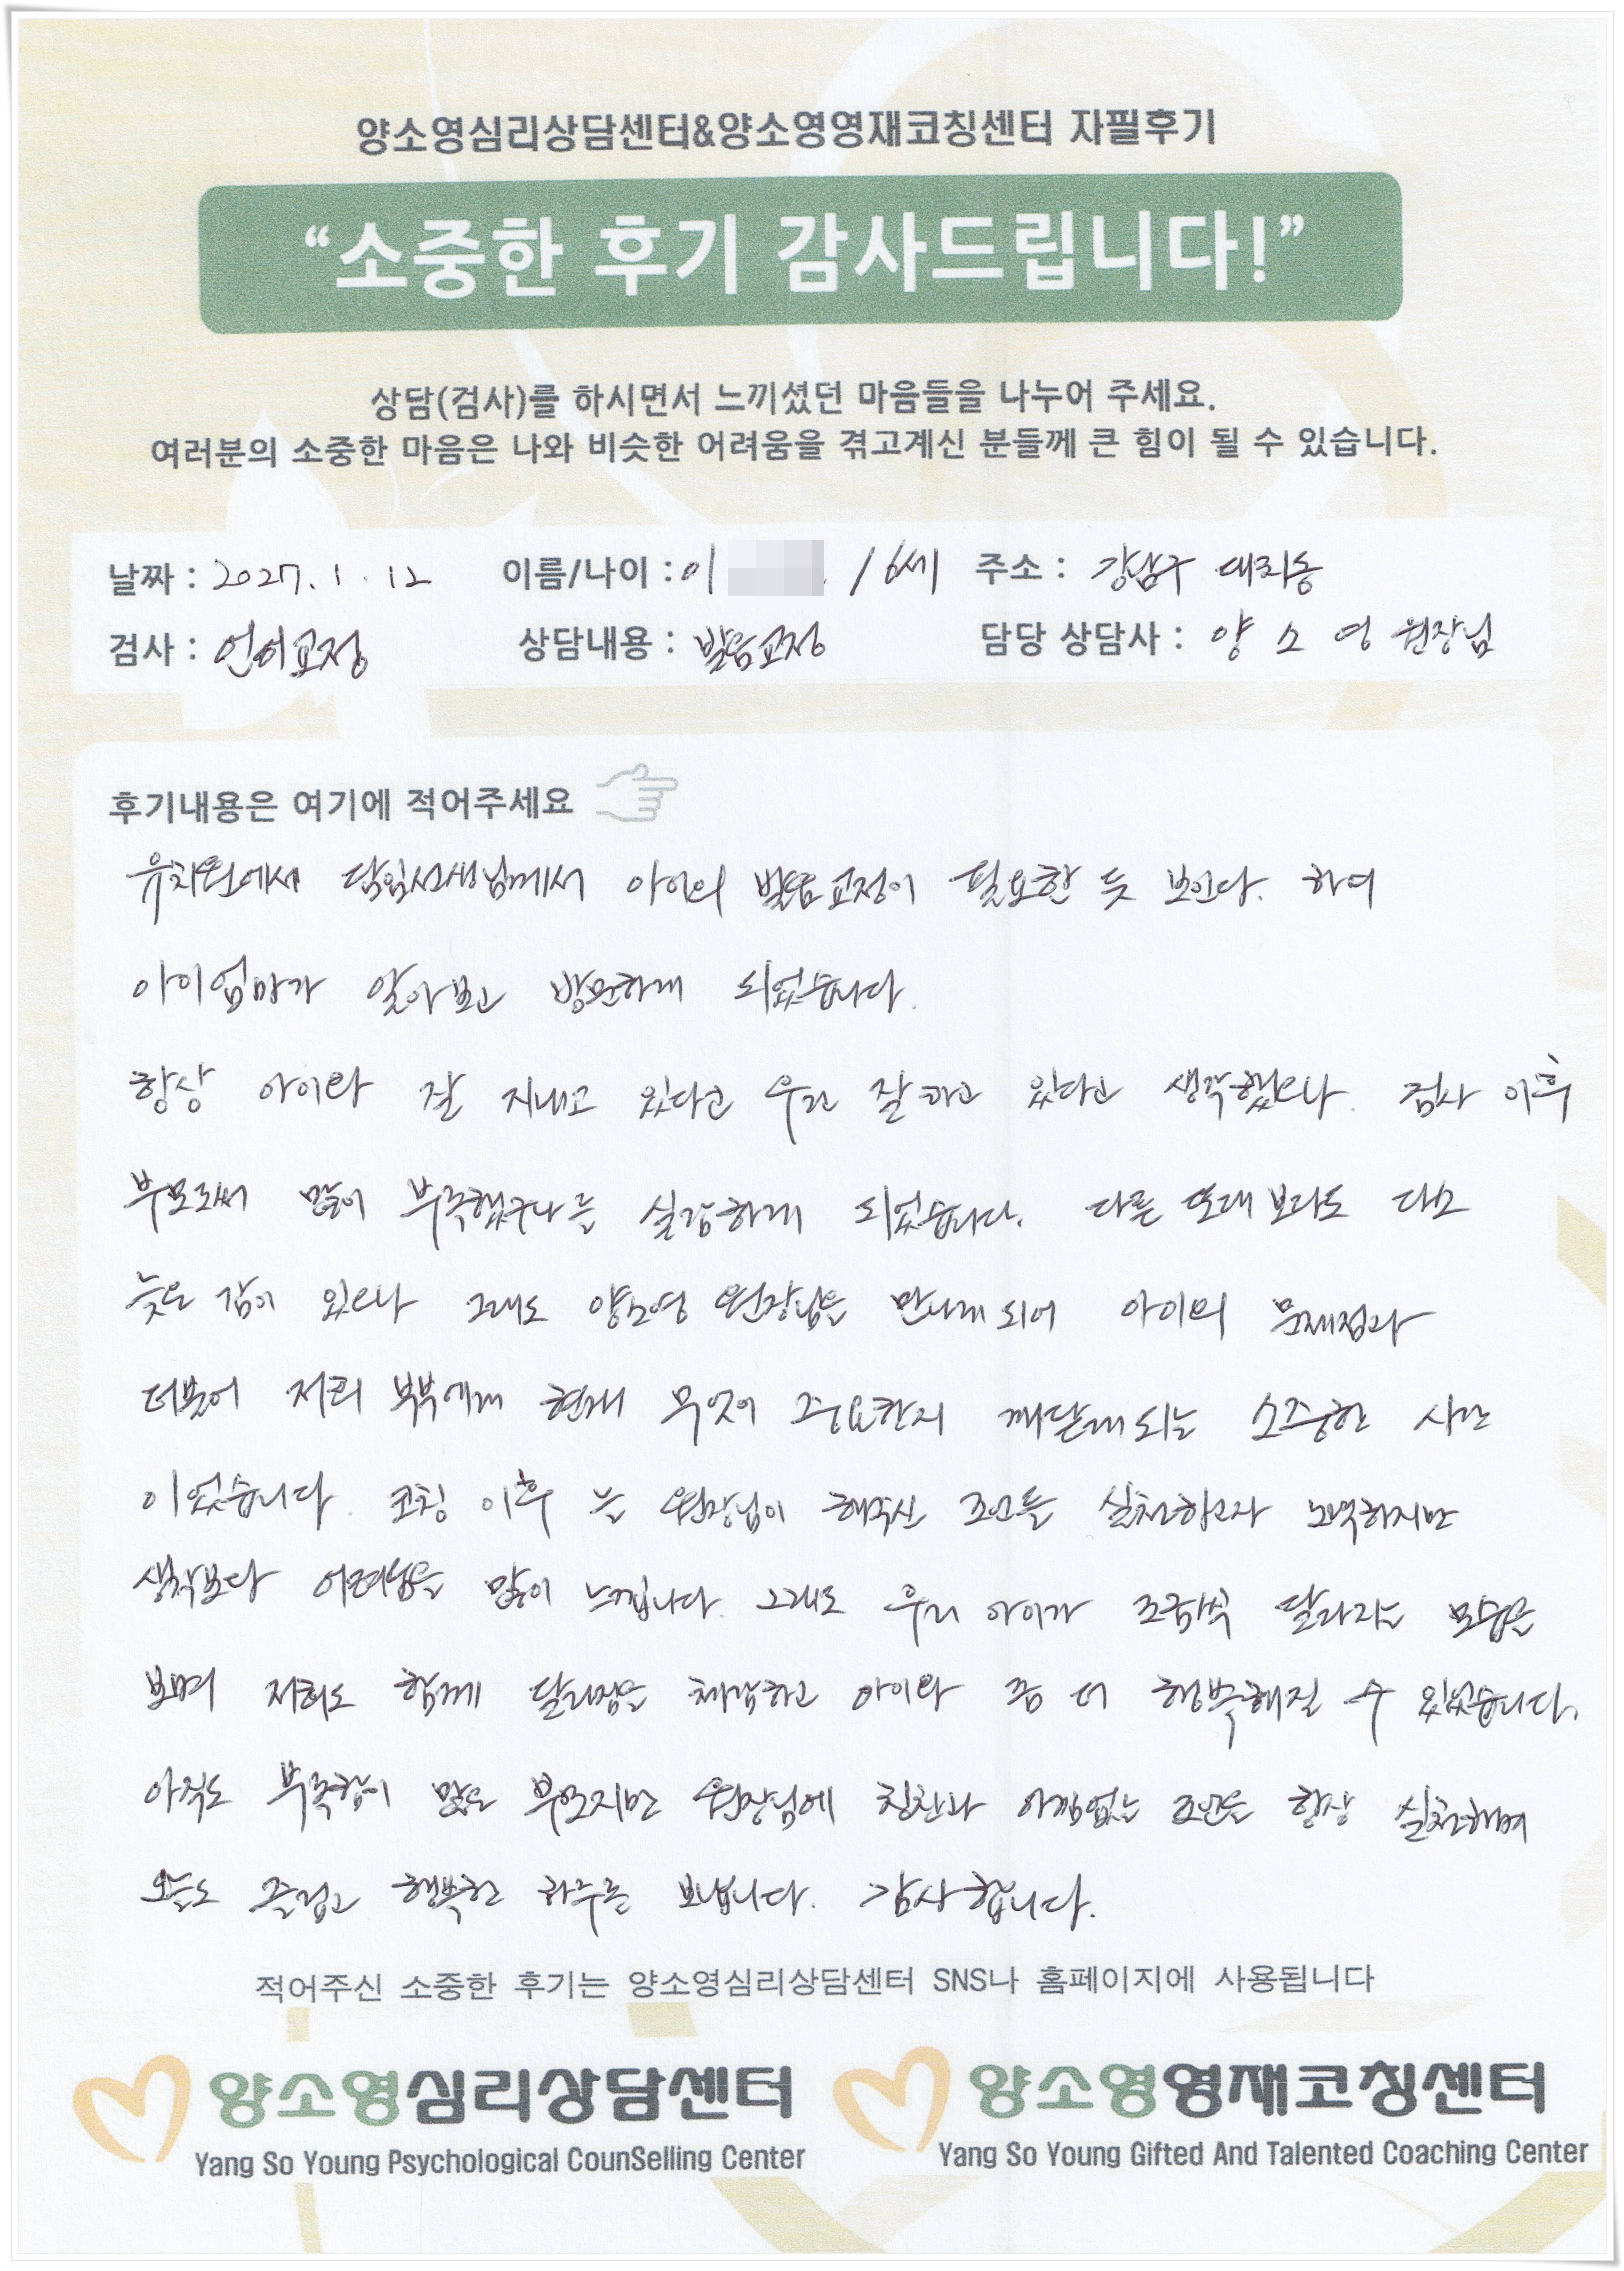 양소영심리상담센터&양소영영재코칭센터 자필후기
“소중한 후기 감사드립니다!”
상담(검사)를 하시면서 느끼셨던 마음들을 나누어 주세요.
여러분의 소중한 마음은 나와 비슷한 어려움을 겪고계신 분들께 큰 힘이 될 수 있습니다.
날짜 : 2027. 1. 12 이름/나이 : 이 / 6세 주소 : 강남구 대치동
검사 : 언어교정 상담내용 : 발음교정 담당 상담사 : 양 소 영 원장님
후기내용은 여기에 적어주세요
유치원에서 담임선생님께서 아이의 발음교정이 필요한 듯 보인다. 하여
아이엄마가 알아보고 방문하게 되었습니다.
항상 아이와 잘 지내고 있다고 우린 잘하고 있다고 생각했으나. 검사 이후
부모로써 많이 부족했구나를 실감하게 되었습니다. 다른 또래보다도 다소
늦은 감이 있으나 그래도 양소영 원장님을 만나게되어 아이의 문제점과
더불어 저희 부부에게 현재 무엇이 중요한지 깨닫게되는 소중한 시간
이었습니다. 코칭 이후 는 원장님이 해주신 조언들 실천하고자 노력하지만
생각보다 어려움을 많이 느낍니다. 그래도 우리 아이가 조금씩 달라지는 모습을
보며 저희도 함께 달라짐을 체감하고 아이와 좀 더 행복해질 수 있었습니다.
아직도 부족함이 많은 부모지만 원장님에 칭찬과 아낌없는 조언을 항상 실천하며
오늘도 즐겁고 행복한 하루를 보냅니다. 감사합니다.
적어주신 소중한 후기는 양소영심리상담센터 SNS나 홈페이지에 사용됩니다
양소영심리상담센터 양소영영재코칭센터
Yang So Young Psychological CounSelling Center Yang So Young Gifted And Talented Coaching Center